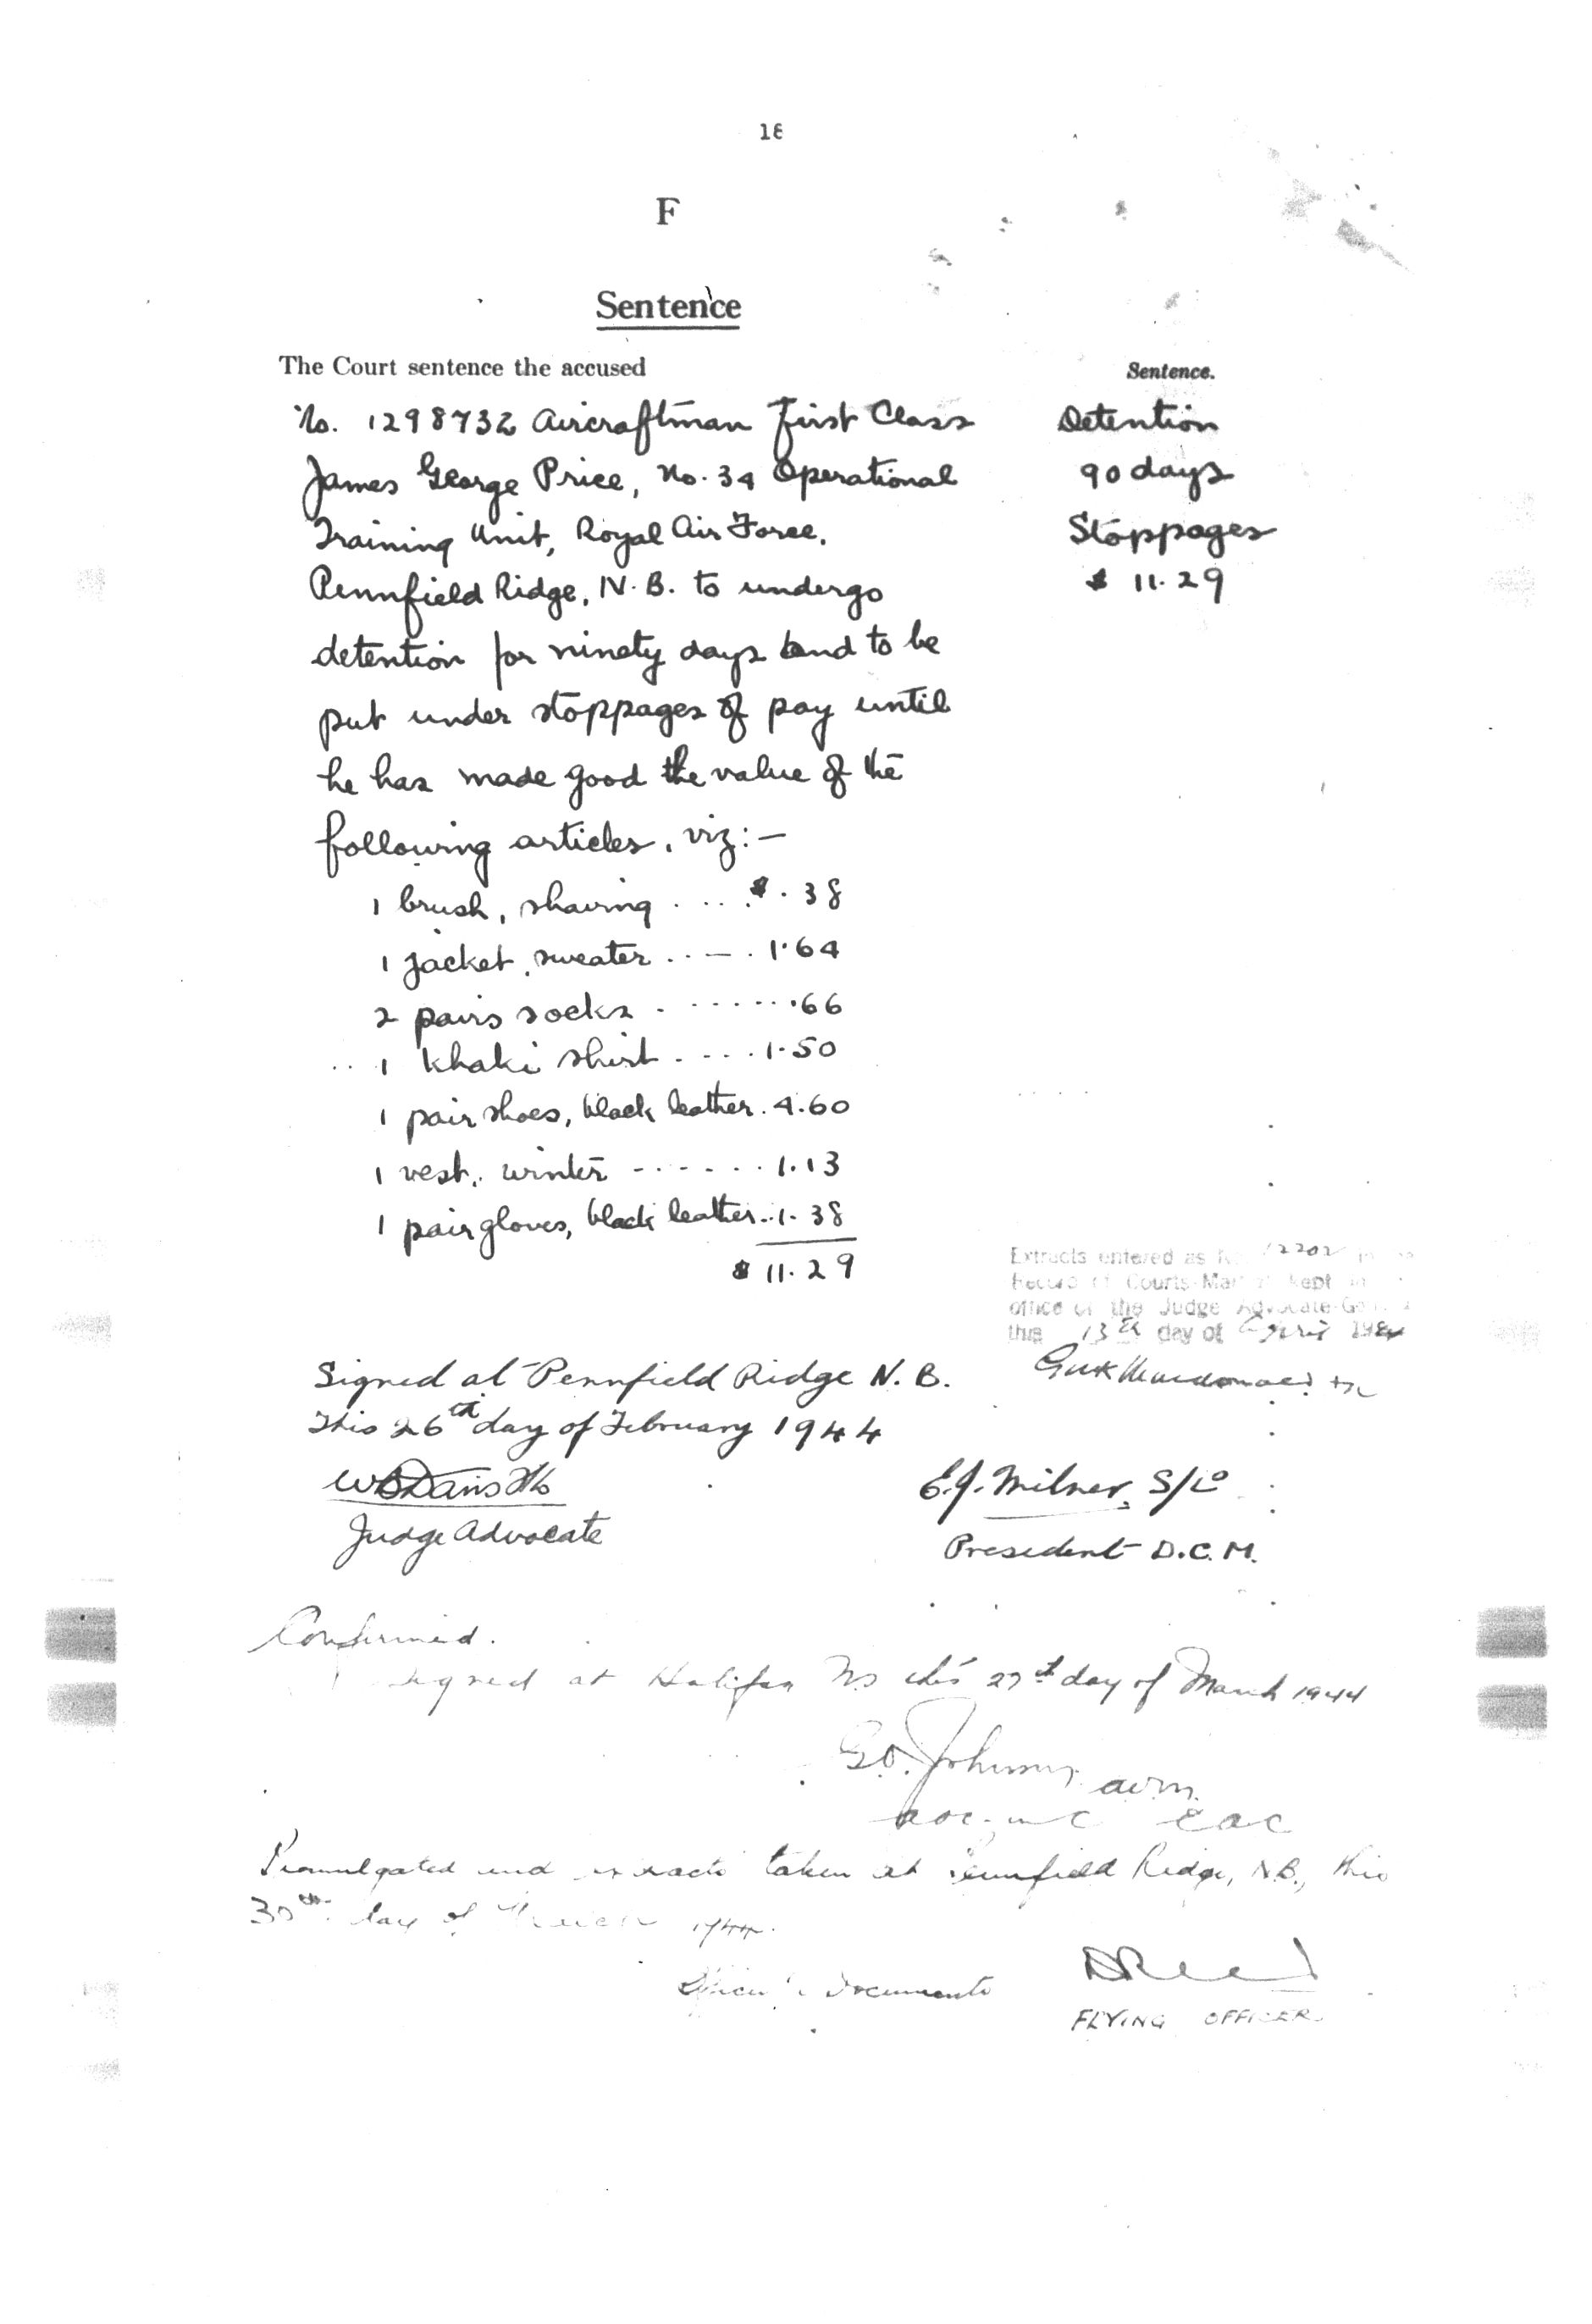 18
F
Sentence
The Court sentence the accused
Sentence.
No. 1298732 Aircraftman First Class
Detention
James George Price, No. 34 Operational
90 days
Training Unit, Royal Air Force,
Stoppages
Pennfield Ridge, N.B. to undergo
$ 11.29
detention for ninety days and to be
put under stoppages of pay until
he has made good the value of the
following articles, viz:—
1 brush, shaving .... $ .38
1 jacket, sweater ..—. 1.64
2 pairs socks . ...... .66
1 khaki shirt .... 1.50
1 pair shoes, black leather . 4.60
1 vest, winter ------ 1.13
1 pair gloves, black leather .. 1.38
$ 11.29
Extracts entered as No. 12202 in
Record of Courts-Martial kept in
office of the Judge Advocate-General
this 13th day of April 1944
Signed at Pennfield Ridge N.B.
This 26th day of February 1944
Davis
E.J. Milner, S/L
Judge Advocate
President D.C.M.
Confirmed.
Signed at Halifax NS this 27th day of March 1944
G.O. Johnson AVM
AOC-in-C EAC
Promulgated and extracts taken at Pennfield Ridge, N.B., this
30th day of March 1944.
Documents
FLYING OFFICER